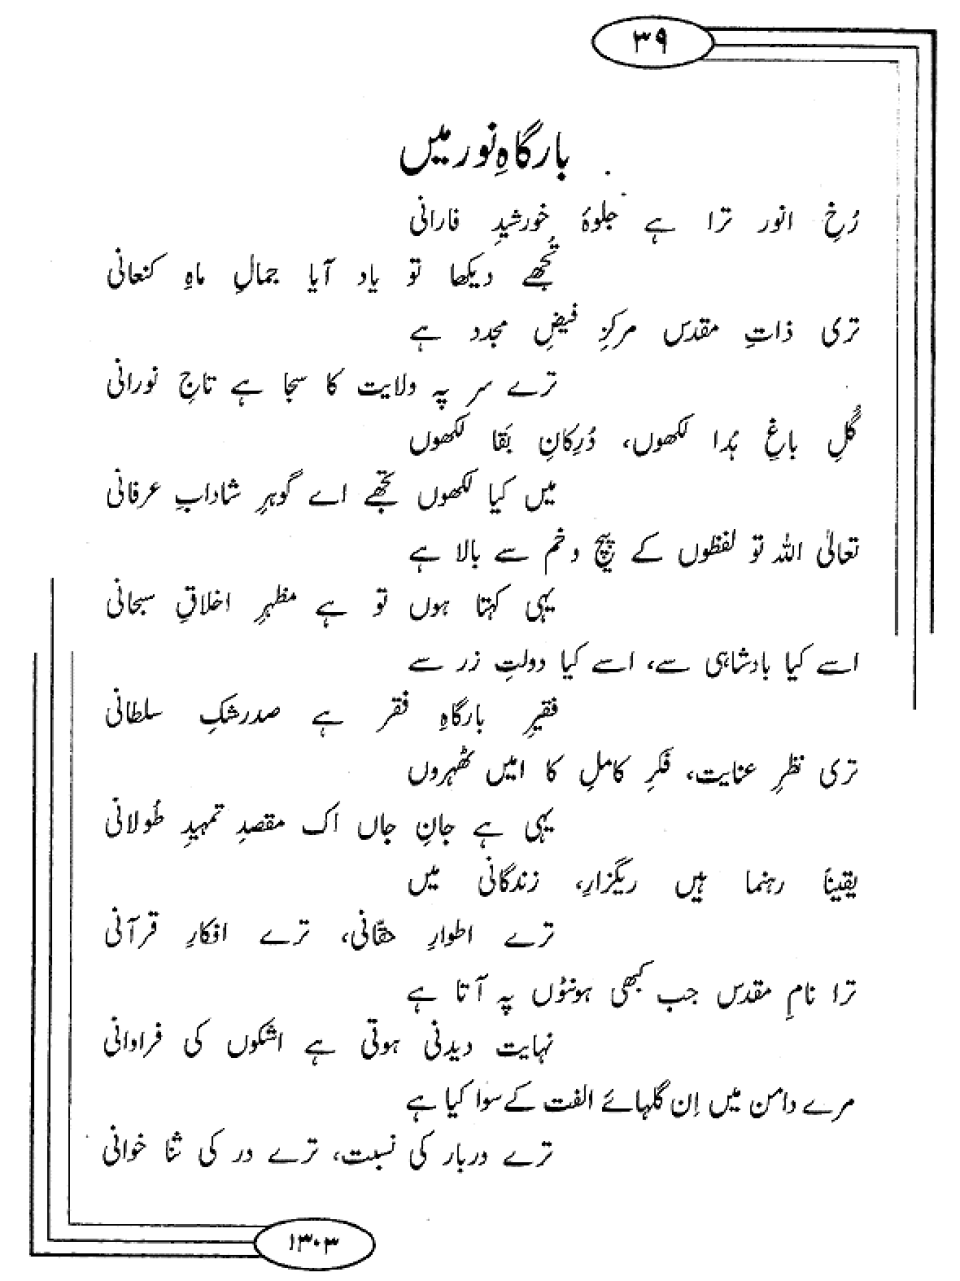 ۳۹
بارگاہِ نور میں
رُخِ انور ترا ہے جلوۂ خورشیدِ فارانی
تُجھے دیکھا تو یاد آیا جمالِ ماہِ کنعانی
تری ذاتِ مقدس مرکزِ فیضِ مجدد ہے
ترے سر پہ ولایت کا سجا ہے تاجِ نورانی
گُلِ باغِ ہُدا لکھوں، دُرِکانِ بَقا لکھوں
میں کیا لکھوں تجھے اے گوہرِ شادابِ عرفانی
تعالیٰ اللہ تو لفظوں کے پیچ و خم سے بالا ہے
یہی کہتا ہوں تو ہے مظہرِ اخلاقِ سبحانی
اسے کیا بادشاہی سے، اسے کیا دولتِ زر سے
فقیرِ بارگاہِ فقر ہے صدرشکِ سلطانی
تری نظرِ عنایت، فکرِ کاملِ کا امیں ٹھہروں
یہی ہے جانِ جاں اک مقصدِ تمہیدِ طُولانی
یقیناً رہنما ہیں ریگزارِ، زندگانی میں
ترے اطوارِ حقّانی، ترے افکارِ قرآنی
ترا نامِ مقدس جب کبھی ہونٹوں پہ آتا ہے
نہایت دیدنی ہوتی ہے اشکوں کی فراوانی
مرے دامن میں اِن گلہائے الفت کے سوا کیا ہے
ترے دربار کی نسبت، ترے در کی ثنا خوانی
۱۳۰۳